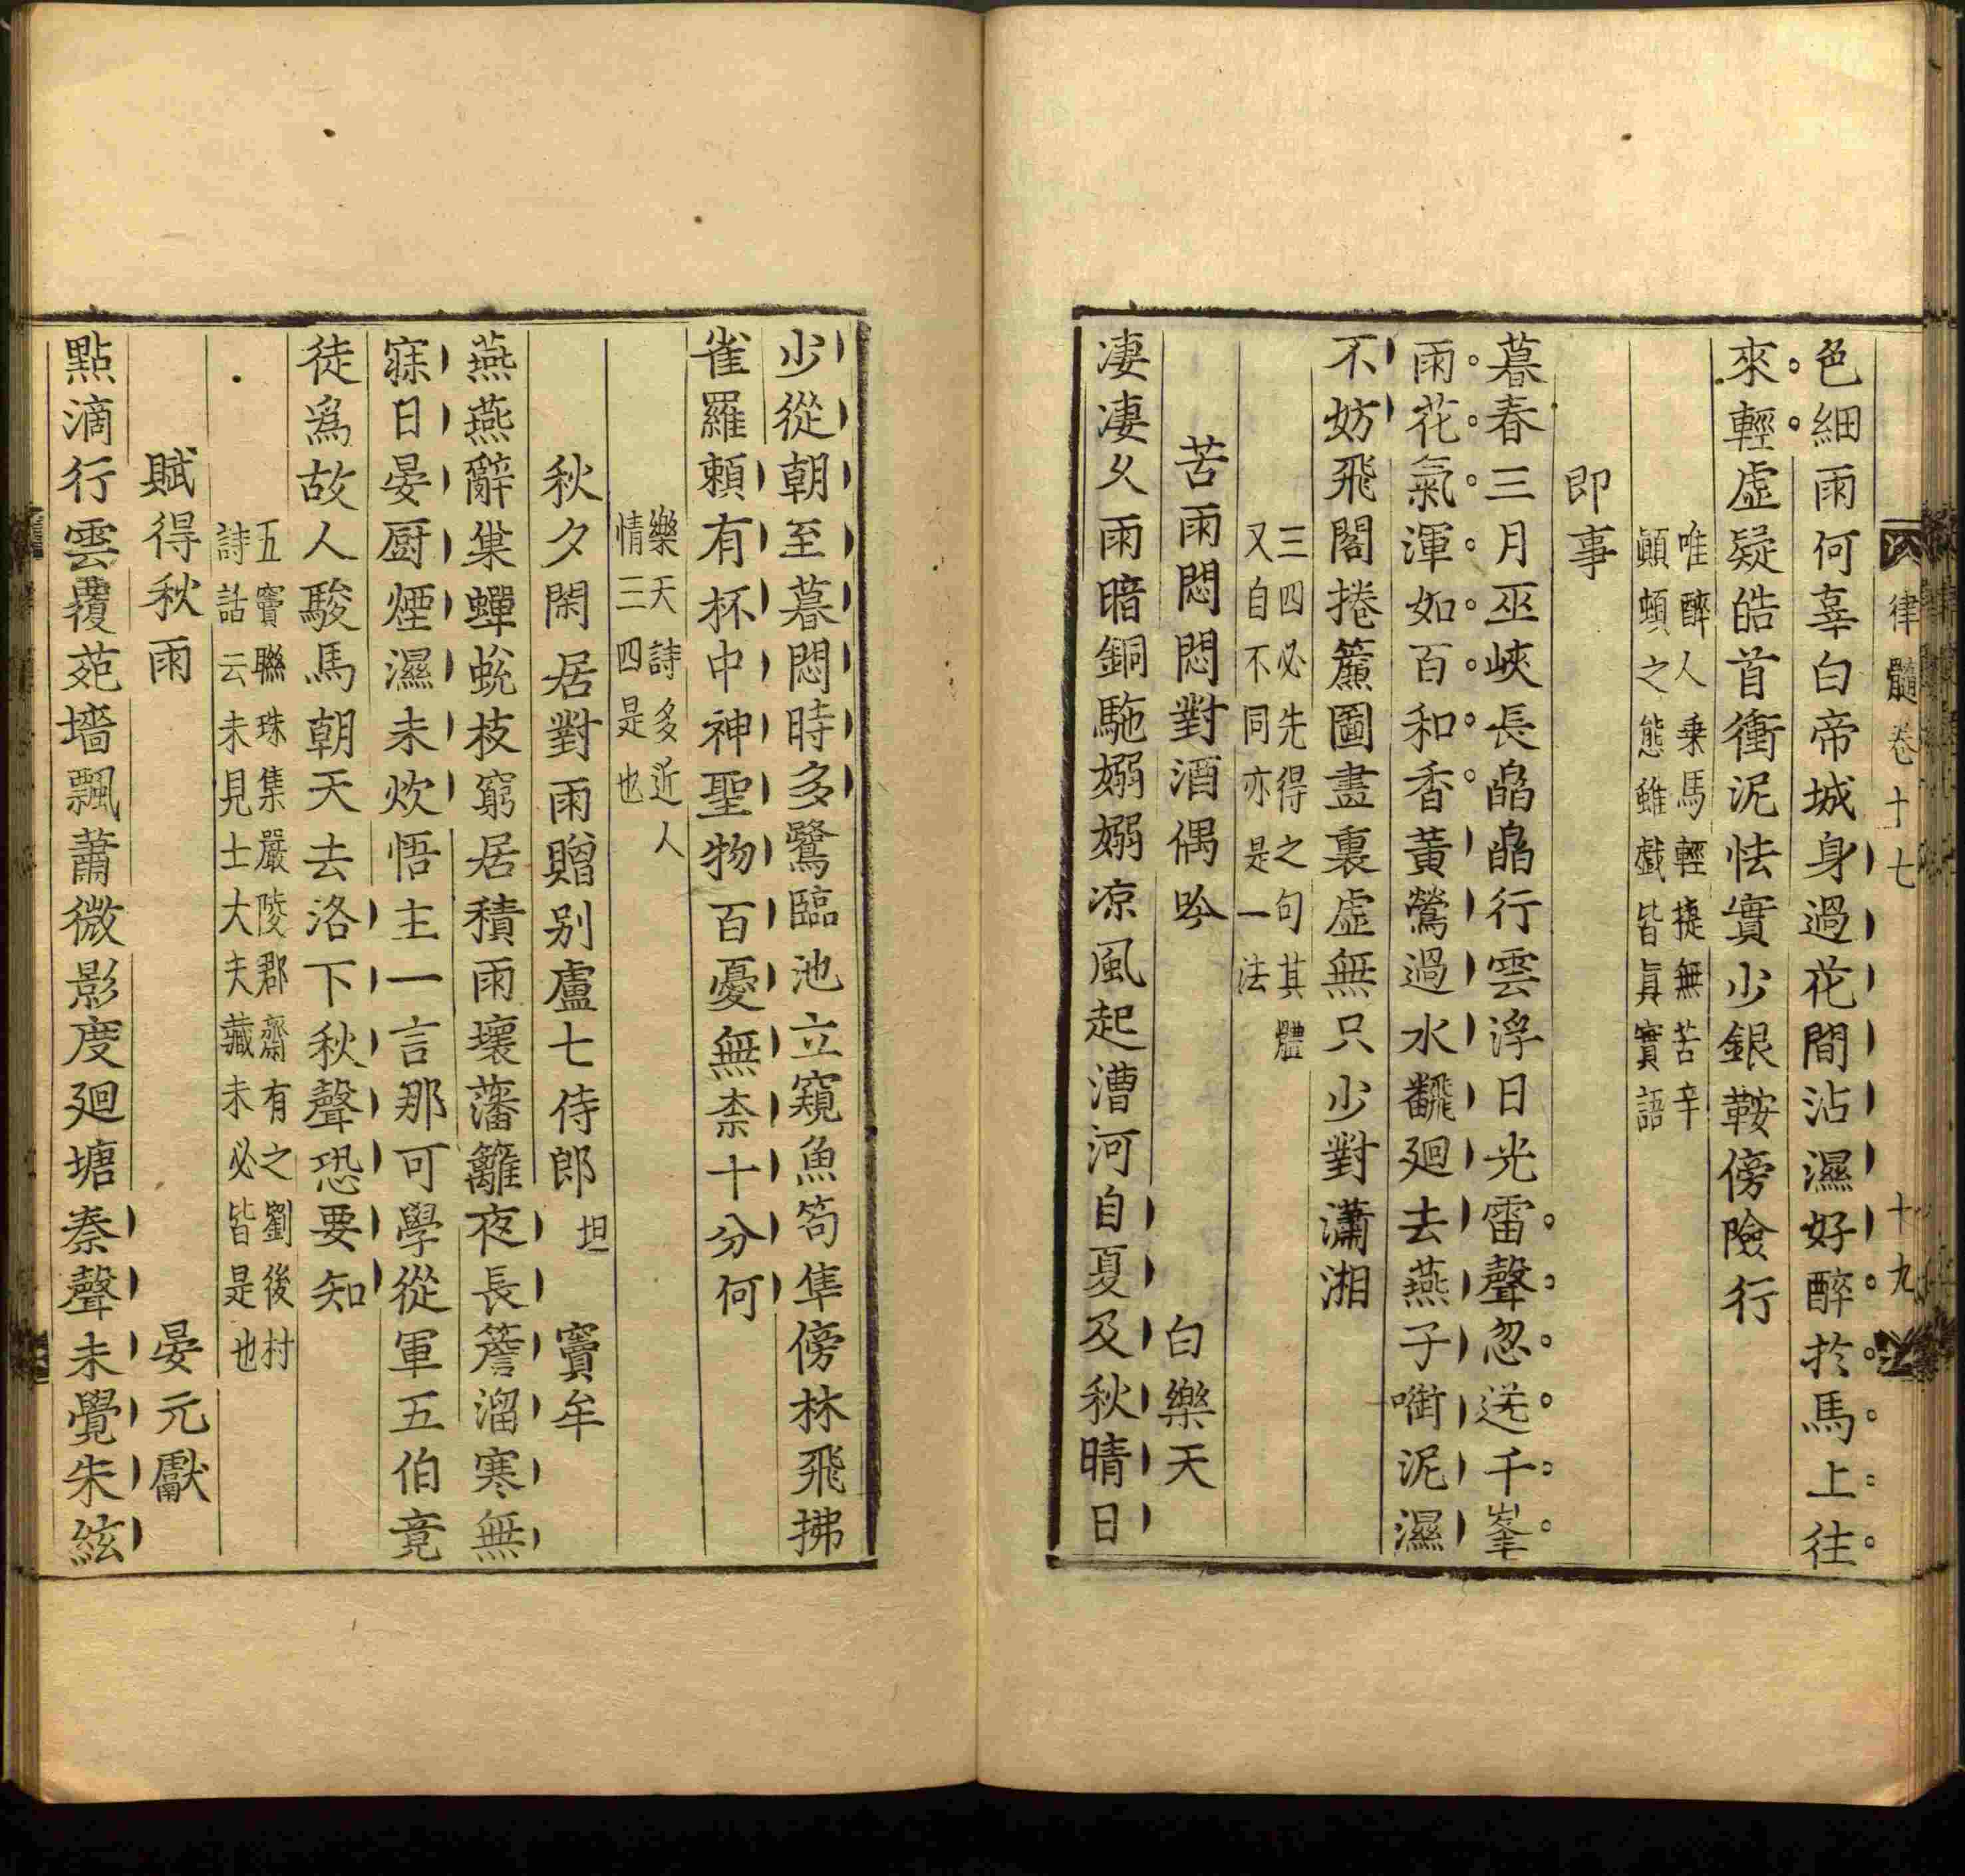 律髓卷十七 十九
色細雨何辜白帝城身過花間沾濕好醉於馬上往
來輕虛疑皓首衝泥怯實少銀鞍傍險行
唯醉人乗馬輕捷無苦辛
顚頓之態雖戲皆眞實語
即事
暮春三月巫峽長皛皛行雲浮日光雷聲忽送千峯
雨花氣渾如百和香黃鶯過水飜廻去燕子啣泥濕
不妨飛閣捲簾圖畫裏虛無只少對瀟湘
三四必先得之句其體
又自不同亦是一法
苦雨悶悶對酒偶吟 白樂天
凄凄久雨暗銅駞嫋嫋凉風起漕河自夏及秋晴日
少從朝至暮悶時多鷺臨池立窺魚笱隼傍林飛拂
雀羅頼有杯中神聖物百憂無柰十分何
樂天詩多近人
情三四是也
秋夕閑居對雨贈别盧七侍郎坦 竇牟
燕燕辭巢蟬蛻枝窮居積雨壞藩籬夜長簷溜寒無
寐日晏厨煙濕未炊悟主一言那可學從軍五伯竟
徒爲故人駿馬朝天去洛下秋聲恐要知
五竇聯珠集嚴陵郡齋有之劉後村
詩話云未見士大夫藏未必皆是也
賦得秋雨 晏元獻
點滴行雲覆苑墻飄蕭微影度廻塘秦聲未覺朱絃